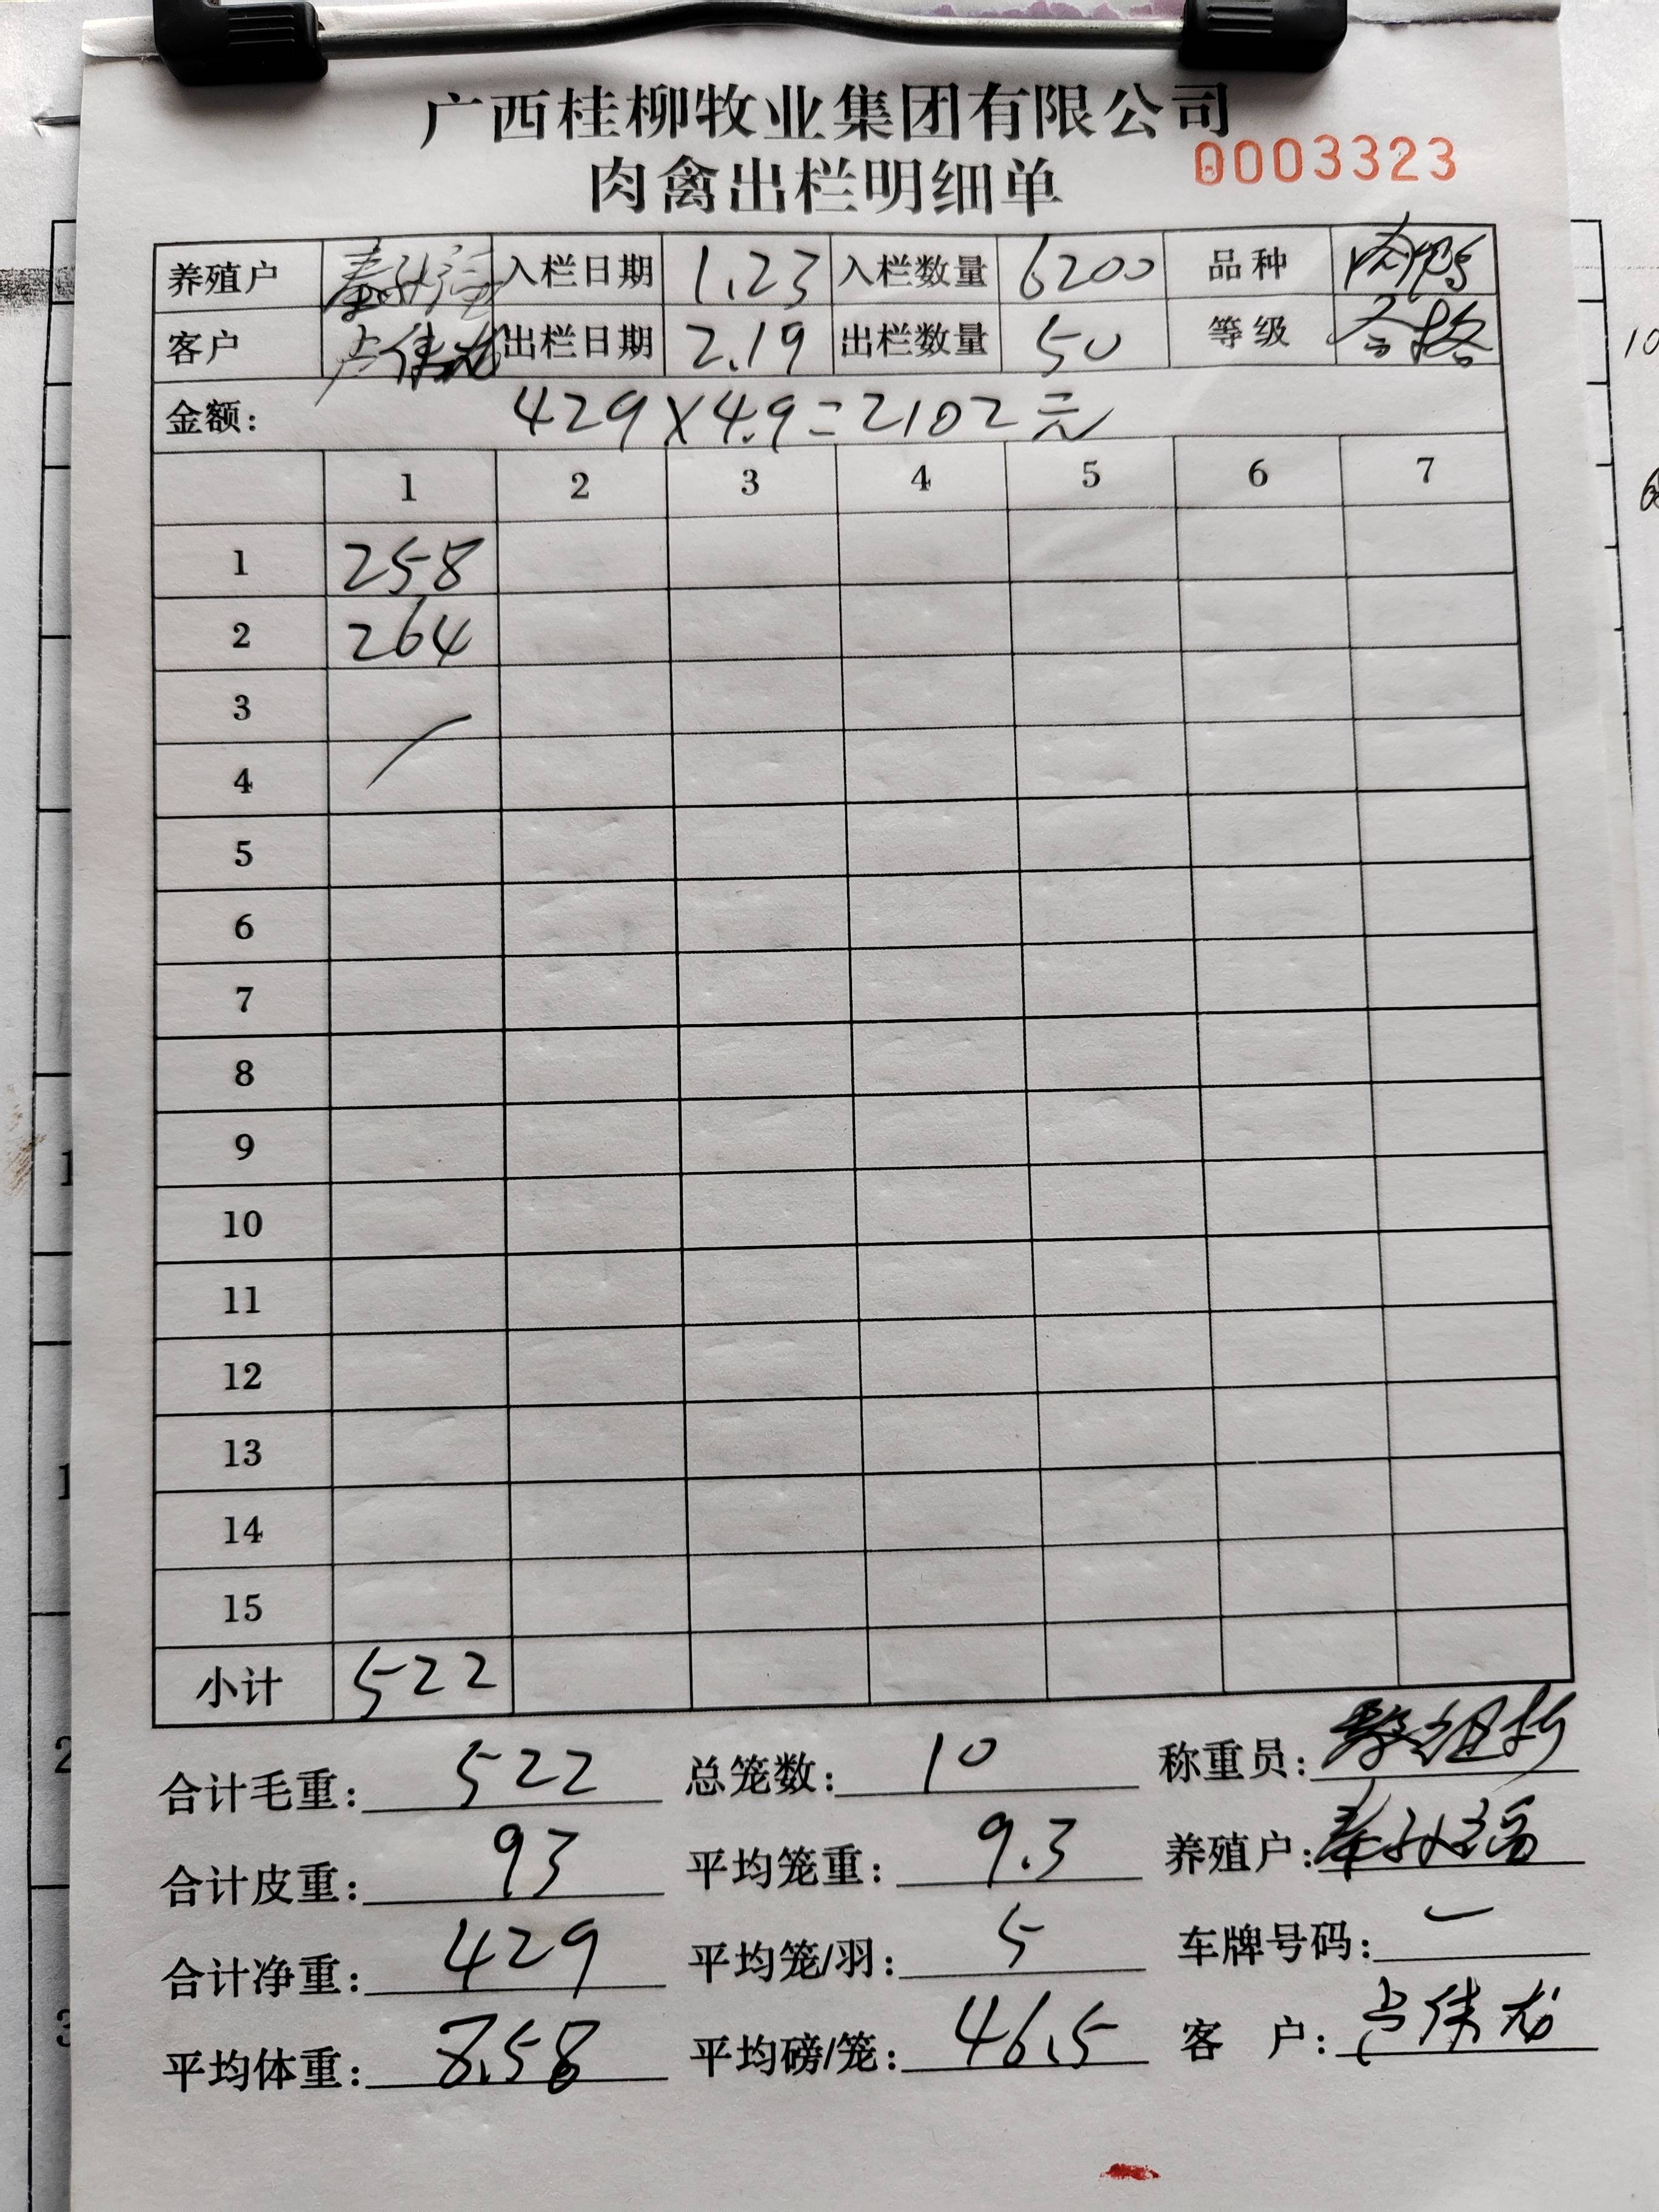 广西桂柳牧业集团有限公司
肉禽出栏明细单 0003323
养殖户 入栏日期 1.23 入栏数量 6200 品种 肉鸭
客户 卢伟龙 出栏日期 2.19 出栏数量 50 等级 合格
金额: 429×4.9=2102元
1 2 3 4 5 6 7
1 258
2 264
3
4
5
6
7
8
9
10
11
12
13
14
15
小计 522
合计毛重: 522 总笼数: 10 称重员:
合计皮重: 93 平均笼重: 9.3 养殖户:
合计净重: 429 平均笼/羽: 5 车牌号码:
平均体重: 8.58 平均磅/笼: 46.5 客 户: 卢伟龙